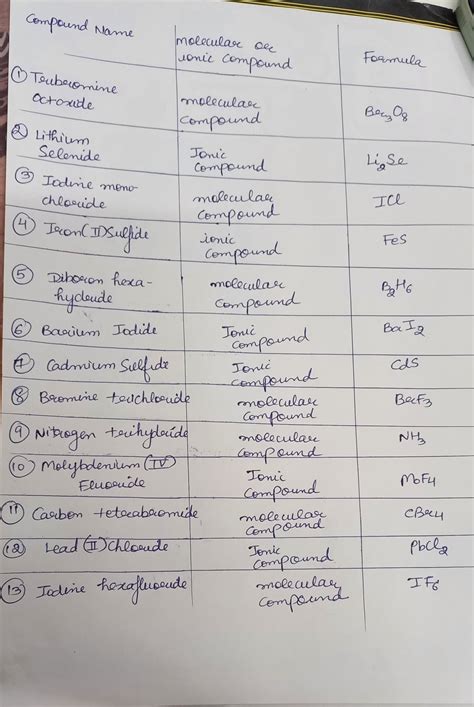 Compound Name
molecular or
ionic compound
Formula
① Tribromine
Octoxide
molecular
compound
Br3O8
② Lithium
Selenide
Ionic
compound
Li2Se
③ Iodine mono-
chloride
molecular
compound
ICl
④ Iron(II)Sulfide
ionic
compound
FeS
⑤ Diboron hexa-
hydride
molecular
compound
B2H6
⑥ Barium Iodide
Ionic
compound
BaI2
⑦ Cadmium Sulfide
Ionic
compound
CdS
⑧ Bromine trichloride
molecular
compound
BrF3
⑨ Nitrogen trihydride
molecular
compound
NH3
⑩ Molybdenium (IV)
Fluoride
Ionic
compound
MoF4
⑪ Carbon tetrabromide
molecular
compound
CBr4
⑫ Lead (II) Chloride
Ionic
compound
PbCl2
⑬ Iodine hexafluoride
molecular
compound
IF6